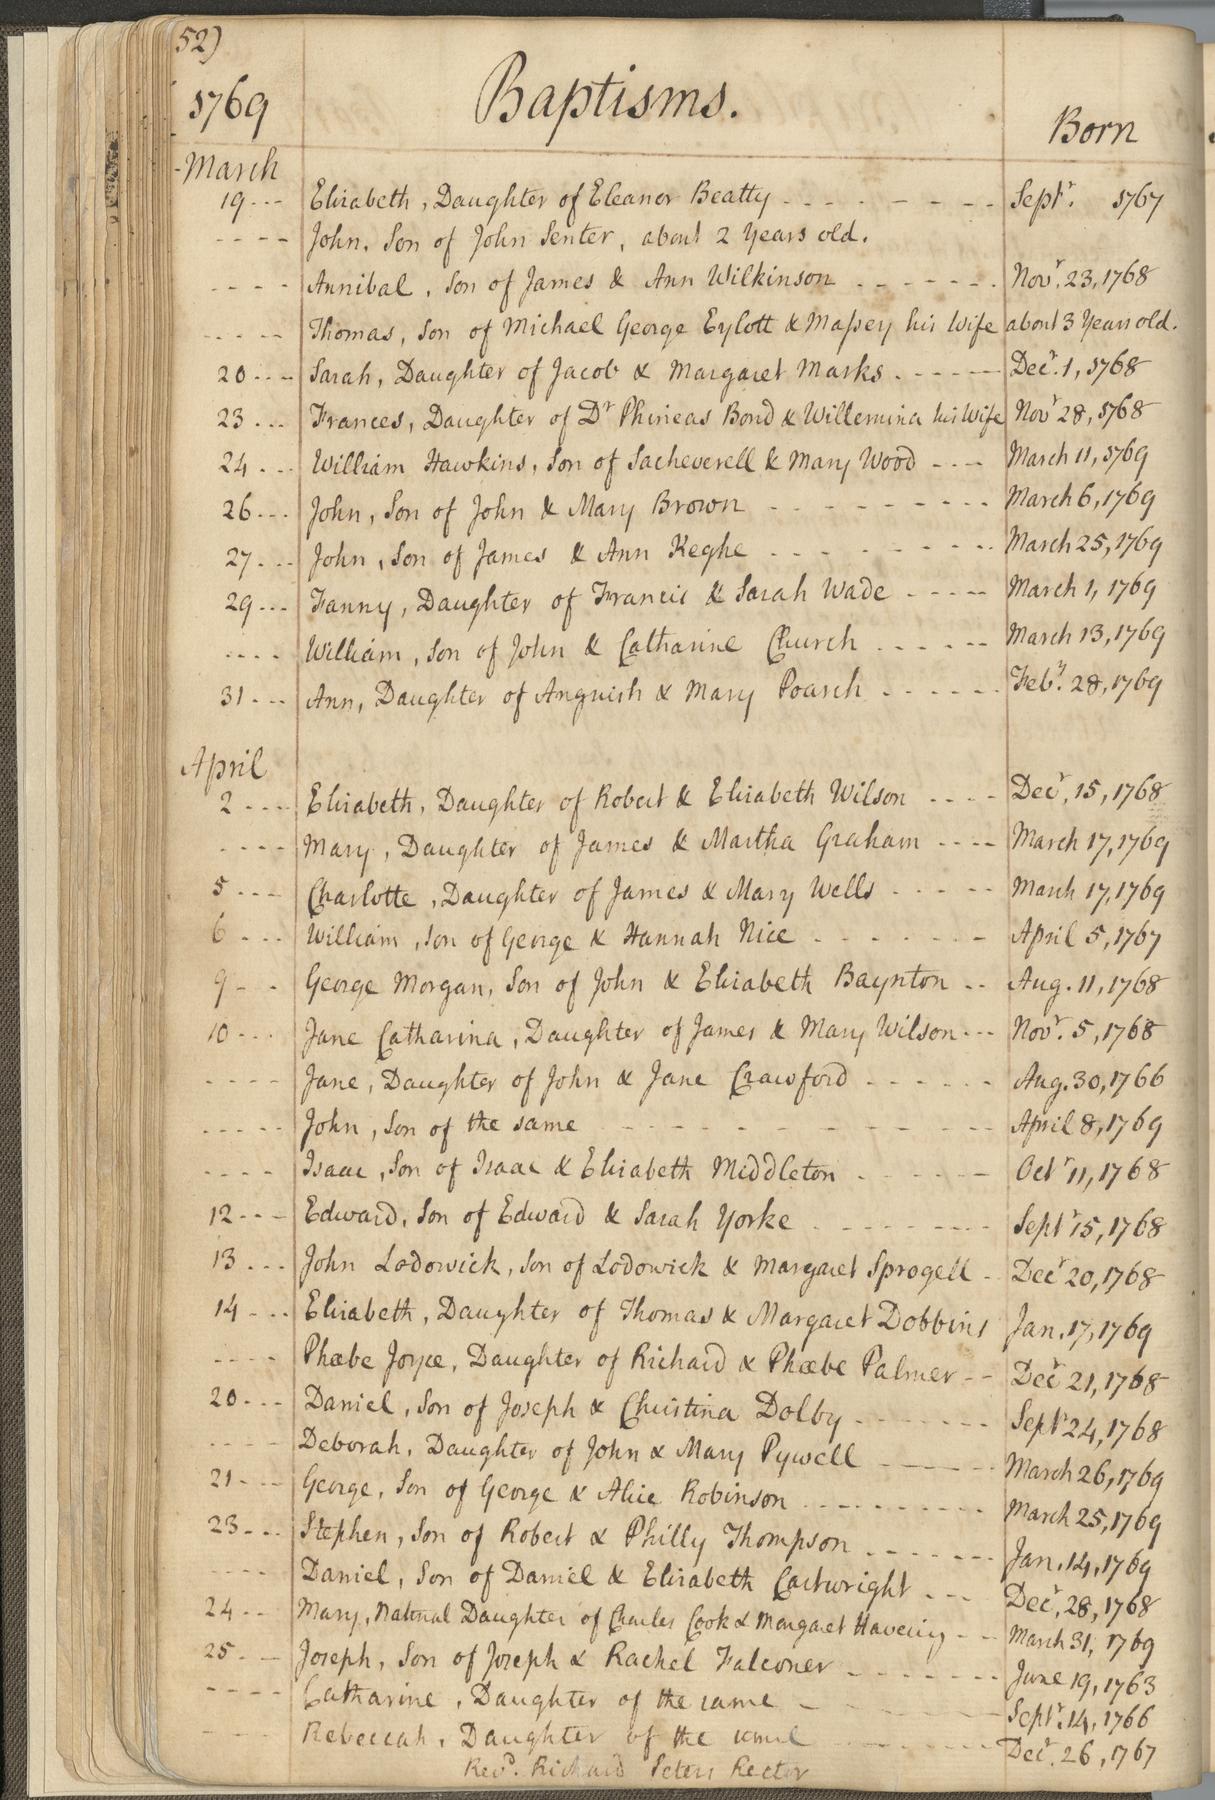 52)
1769 Baptisms. Born
March
19 --- Elizabeth, Daughter of Eleanor Beatty - - - - - - - - Septr. 1767
- - - - John, Son of John Senter, about 2 Years old.
- - - - Annibal, Son of James & Ann Wilkinson - - - - - - - Novr. 23, 1768
- - - - Thomas, Son of Michael George Eylott & Massey his Wife about 3 Years old.
20 --- Sarah, Daughter of Jacob & Margaret Marks - - - - - Decr. 1, 1768
23 --- Frances, Daughter of Dr Phineas Bond & Willemina his Wife Novr 28, 1768
24 --- William Hawkins, Son of Sacheverell & Mary Wood - - - - March 11, 1769
26 --- John, Son of John & Mary Brown - - - - - - - - - March 6, 1769
27 --- John, Son of James & Ann Keghe - - - - - - - - - March 25, 1769
29 --- Fanny, Daughter of Francis & Sarah Wade - - - - - March 1, 1769
- - - - William, Son of John & Catharine Church - - - - - - March 13, 1769
31 --- Ann, Daughter of Anguish & Mary Poarch - - - - - - Feby. 28, 1769
April
2 --- Elizabeth, Daughter of Robert & Elizabeth Wilson - - - - Decr, 15, 1768
- - - - Mary, Daughter of James & Martha Graham - - - - March 17, 1769
5 --- Charlotte, Daughter of James & Mary Wells - - - - - March 17, 1769
6 --- William, Son of George & Hannah Nice - - - - - - - April 5, 1767
9 - - George Morgan, Son of John & Elizabeth Baynton - - Aug. 11, 1768
10 --- Jane Catharina, Daughter of James & Mary Wilson --- Novr. 5, 1768
- - - - Jane, Daughter of John & Jane Crawford - - - - - - Aug. 30, 1766
- - - - John, Son of the same - - - - - - - - - - - April 8, 1769
- - - - Isaac, Son of Isaac & Elizabeth Middleton - - - - - - Octr 11, 1768
12 --- Edward, Son of Edward & Sarah Yorke - - - - - - - - Septr 15, 1768
13 --- John Lodowick, Son of Lodowick & Margaret Sprogell - Decr 20, 1768
14 --- Elizabeth, Daughter of Thomas & Margaret Dobbins Jan. 17, 1769
- - - - Phœbe Joyce, Daughter of Richard & Phœbe Palmer - - Decr 21, 1768
20 --- Daniel, Son of Joseph & Christina Dolby - - - - - - - Septr 24, 1768
- - - - Deborah, Daughter of John & Mary Pywell - - - - - March 26, 1769
21 --- George, Son of George & Alice Robinson - - - - - - - - March 25, 1769
23 --- Stephen, Son of Robert & Philly Thompson - - - - - - Jan. 14, 1769
- - - - Daniel, Son of Daniel & Elizabeth Cartwright - - - Decr, 28, 1768
24 -- Mary, Natural Daughter of Charles Cook & Margaret - - March 31, 1769
25 --- Joseph, Son of Joseph & Rachel Falconer - - - - - - - June 19, 1763
- - - - Catharine, Daughter of the same - - - - - - Septr. 14, 1766
- - - Rebeccah, Daughter of the same - - - - - - - - Decr. 26, 1767
Revd. Richard Peters Rector